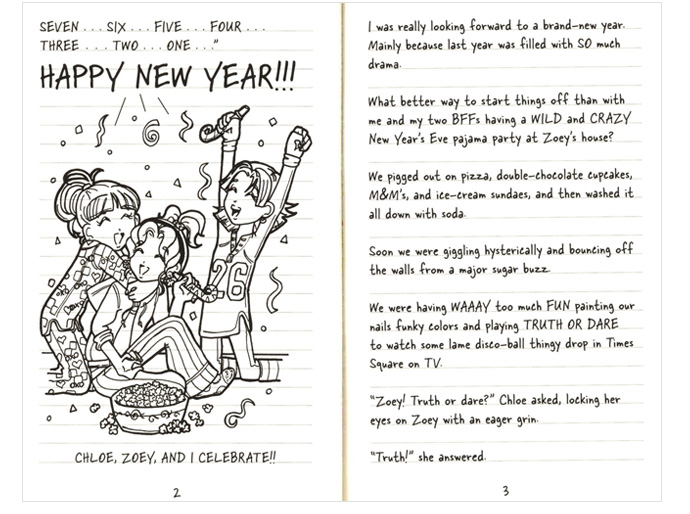 SEVEN . . . SIX . . . FIVE . . . FOUR . . .
THREE . . . TWO . . . ONE . . ."
HAPPY NEW YEAR!!!
26
CHLOE, ZOEY, AND I CELEBRATE!!
2
I was really looking forward to a brand-new year.
Mainly because last year was filled with SO much
drama.
What better way to start things off than with
me and my two BFFs having a WILD and CRAZY
New Year's Eve pajama party at Zoey's house?
We pigged out on pizza, double-chocolate cupcakes,
M&M's, and ice-cream sundaes, and then washed it
all down with soda.
Soon we were giggling hysterically and bouncing off
the walls from a major sugar buzz.
We were having WAAAY too much FUN painting our
nails funky colors and playing TRUTH OR DARE
to watch some lame disco-ball thingy drop in Times
Square on TV.
"Zoey! Truth or dare?" Chloe asked, locking her
eyes on Zoey with an eager grin.
"Truth!" she answered.
3